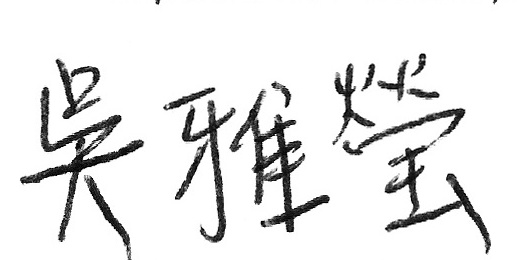 吳雅瑩